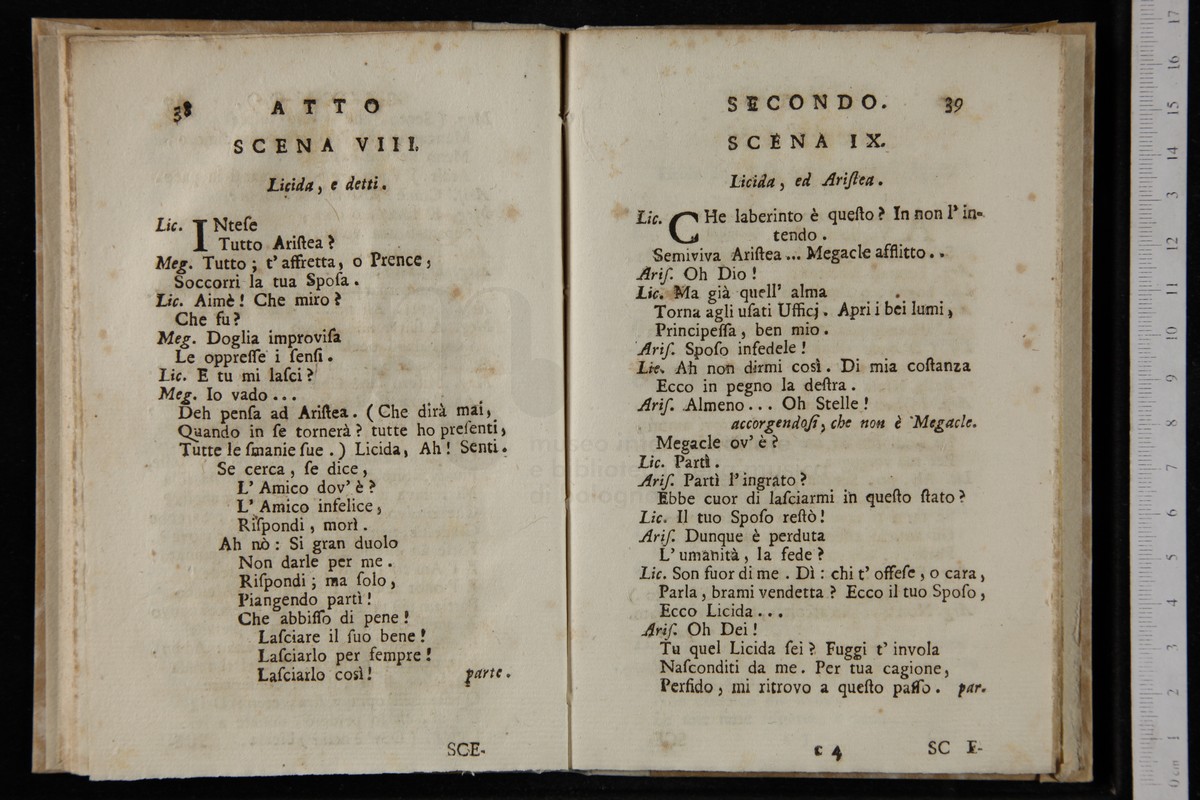 38 ATTO
SCENA VIII.
Licida, e detti.
Lic. INteſe
Tutto Ariſtea?
Meg. Tutto; t' affretta, o Prence,
Soccorri la tua Spoſa.
Lic. Aimè! Che miro?
Che fu?
Meg. Doglia improviſa
Le oppreſſe i ſenſi.
Lic. E tu mi laſci?
Meg. Io vado...
Deh penſa ad Ariſtea. (Che dirà mai,
Quando in ſe tornerà? tutte ho preſenti,
Tutte le ſmanie ſue.) Licida, Ah! Senti.
Se cerca, ſe dice,
L' Amico dov' è?
L' Amico infelice,
Riſpondi, morì.
Ah nò: Si gran duolo
Non darle per me.
Riſpondi; ma ſolo,
Piangendo partì!
Che abbiſſo di pene!
Laſciare il ſuo bene!
Laſciarlo per ſempre!
Laſciarlo così! parte.
SCE-
SECONDO. 39
SCENA IX.
Licida, ed Ariſtea.
Lic. CHe laberinto è queſto? In non l' in-
tendo.
Semiviva Ariſtea... Megacle afflitto..
Ariſ. Oh Dio!
Lic. Ma già quell' alma
Torna agli uſati Ufficj. Apri i bei lumi,
Principeſſa, ben mio.
Ariſ. Spoſo infedele!
Lic. Ah non dirmi così. Di mia coſtanza
Ecco in pegno la deſtra.
Ariſ. Almeno... Oh Stelle!
accorgendoſi, che non è Megacle.
Megacle ov' è?
Lic. Partì.
Ariſ. Partì l' ingrato?
Ebbe cuor di laſciarmi in queſto ſtato?
Lic. Il tuo Spoſo reſtò!
Ariſ. Dunque è perduta
L' umanità, la fede?
Lic. Son fuor di me. Dì: chi t' offeſe, o cara,
Parla, brami vendetta? Ecco il tuo Spoſo,
Ecco Licida...
Ariſ. Oh Dei!
Tu quel Licida ſei? Fuggi t' invola
Naſconditi da me. Per tua cagione,
Perfido, mi ritrovo a queſto paſſo. par.
C 4 SC E-